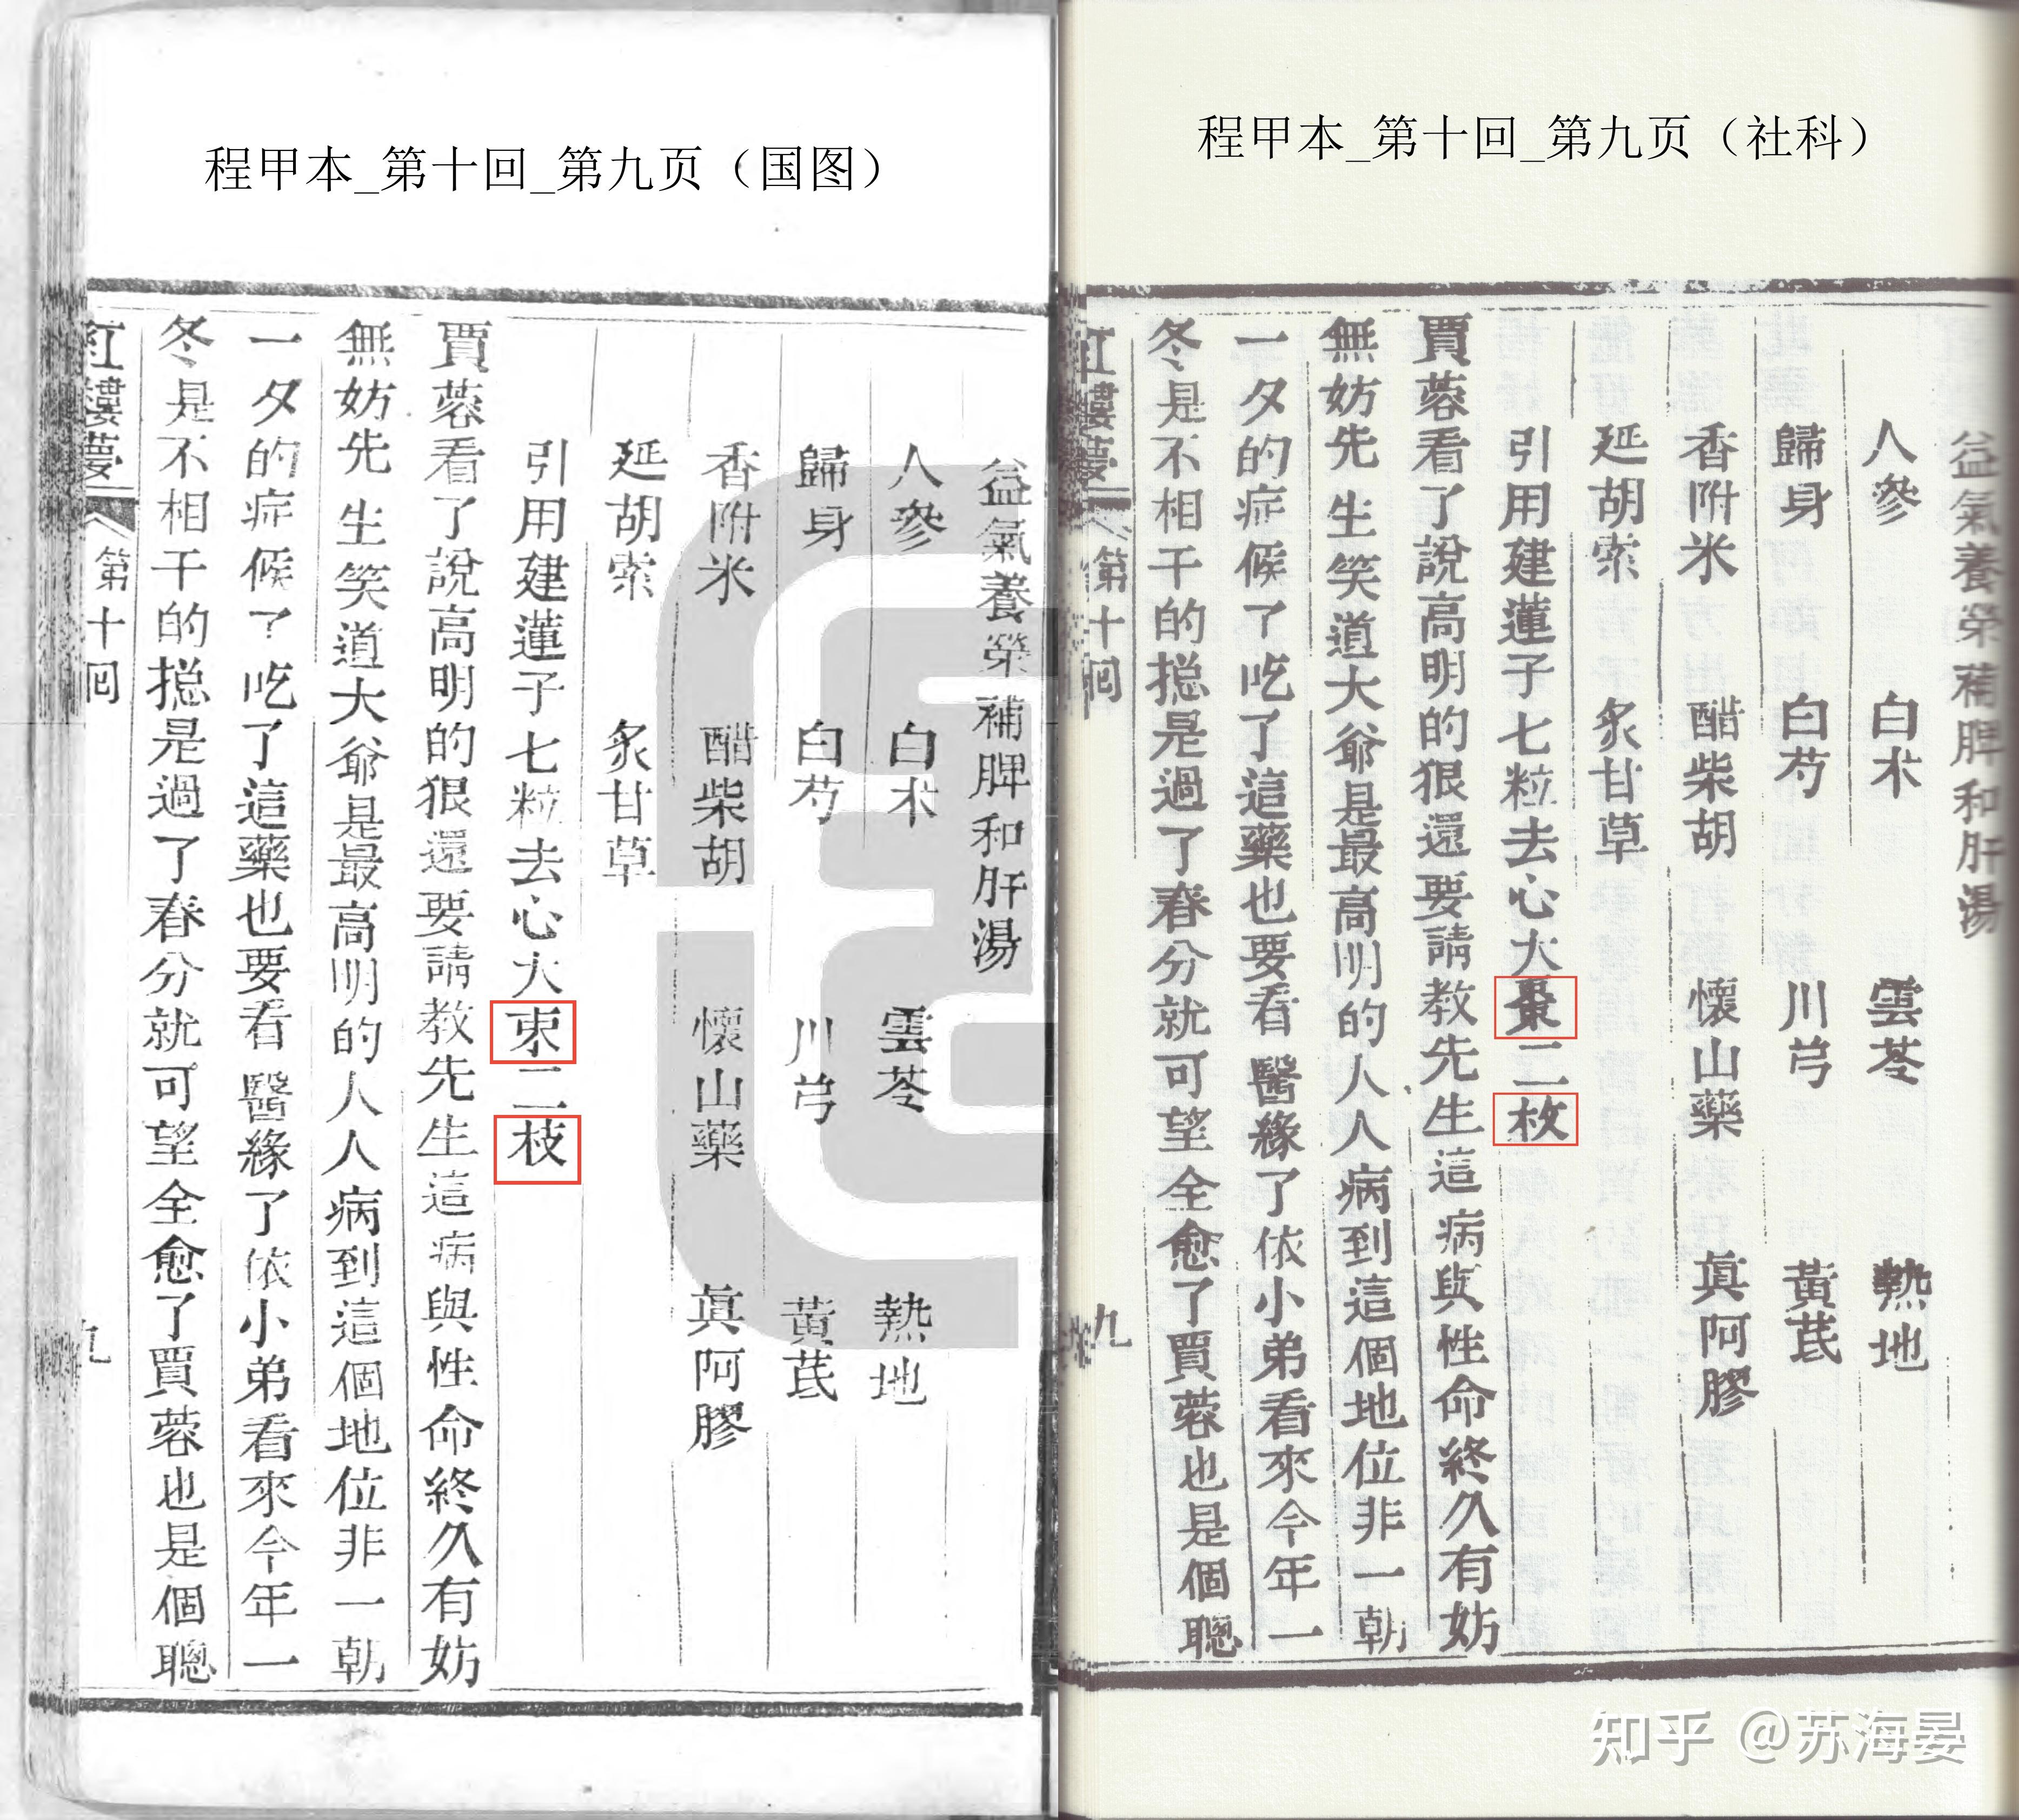 程甲本_第十回_第九页（国图）
益氣養榮補脾和肝湯
人參　白朮　雲苓　熱地
歸身　白芍　川芎　黃芪
香附米　醋柴胡　懷山藥　眞阿膠
延胡索　炙甘草
引用建蓮子七粒去心大朿二枝
賈蓉看了說高明的狠還要請教先生這病與性命終久有妨
無妨先生笑道大爺是最高明的人人病到這個地位非一朝
一夕的症候了吃了這藥也要看醫緣了依小弟看來今年一
冬是不相干的摠是過了春分就可望全愈了賈蓉也是個聰
紅樓夢　第十回　九
程甲本_第十回_第九页（社科）
益氣養榮補脾和肝湯
人參　白朮　雲苓　熱地
歸身　白芍　川芎　黃芪
香附米　醋柴胡　懷山藥　眞阿膠
延胡索　炙甘草
引用建蓮子七粒去心大棗二枚
賈蓉看了說高明的狠還要請教先生這病與性命終久有妨
無妨先生笑道大爺是最高明的人人病到這個地位非一朝
一夕的症候了吃了這藥也要看醫緣了依小弟看來今年一
冬是不相干的摠是過了春分就可望全愈了賈蓉也是個聰
紅樓夢　第十回　九
知乎 @苏海晏